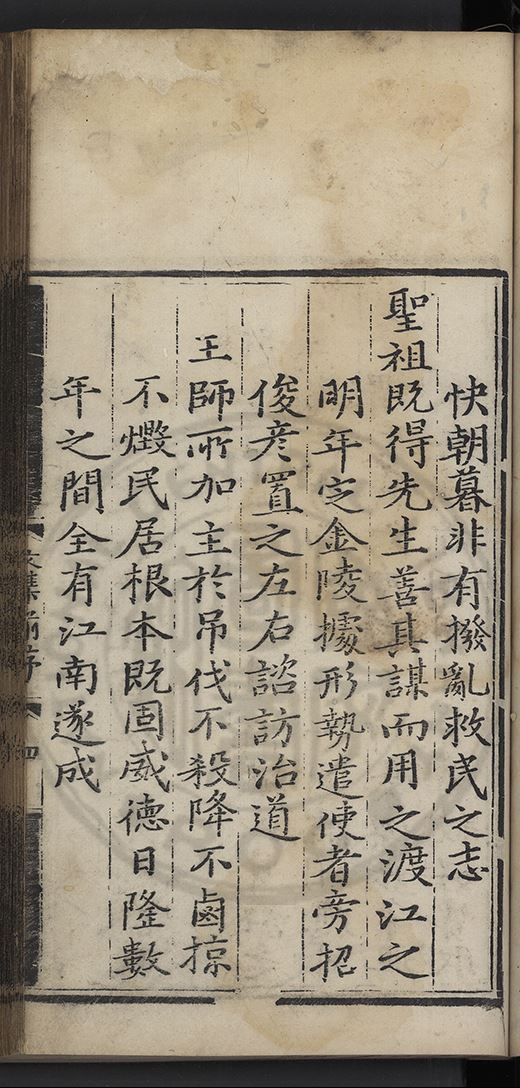 快朝暮非有撥亂救民之志
聖祖既得先生善其謀而用之渡江之
明年定金陵據形勢遣使者旁招
俊彦置之左右諮訪治道
王師所加主於吊伐不殺降不鹵掠
不燬民居根本既固威德日隆數
年之間全有江南遂成
集前序
四